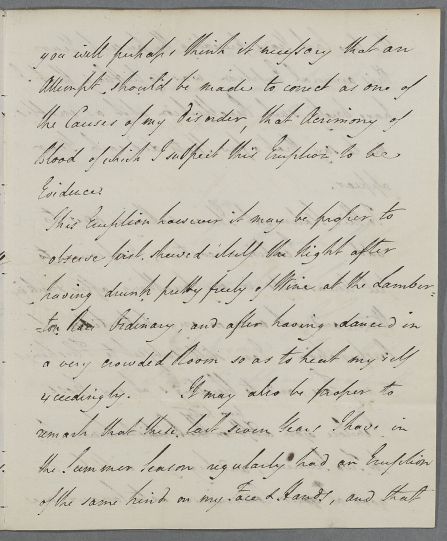 you will perhaps think it necessary that an
Attempt should be made to correct as one of
the Causes of my Disorder, that Acrimony of
Blood of which I suspect this Eruption to be
Evidence
This Eruption however it may be proper to
observe first shewed itself the Night after
having drunk pretty freely of Wine at the Lamber-
-ton Ordinary, and after having danced in
a very crowded Room so as to heat myself
exceedingly. It may also be proper to
remark that these last seven Years I have in
the Summer Season regularly had an Eruption
of the same kind on my Face & Hands, and that